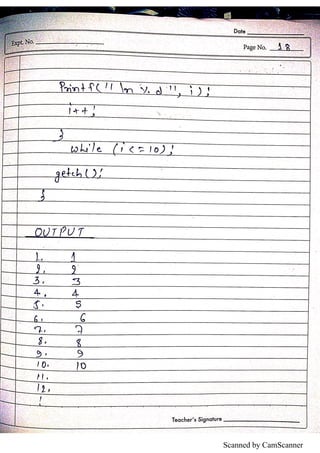 Date
Expt. No.
Page No. 18
Printf(" \n %d ", i);
i++;
}
while (i <= 10);
getch();
}
OUTPUT
1. 1
2. 2
3. 3
4. 4
5. 5
6. 6
7. 7
8. 8
9. 9
10. 10
11.
12.
Teacher's Signature
Scanned by CamScanner